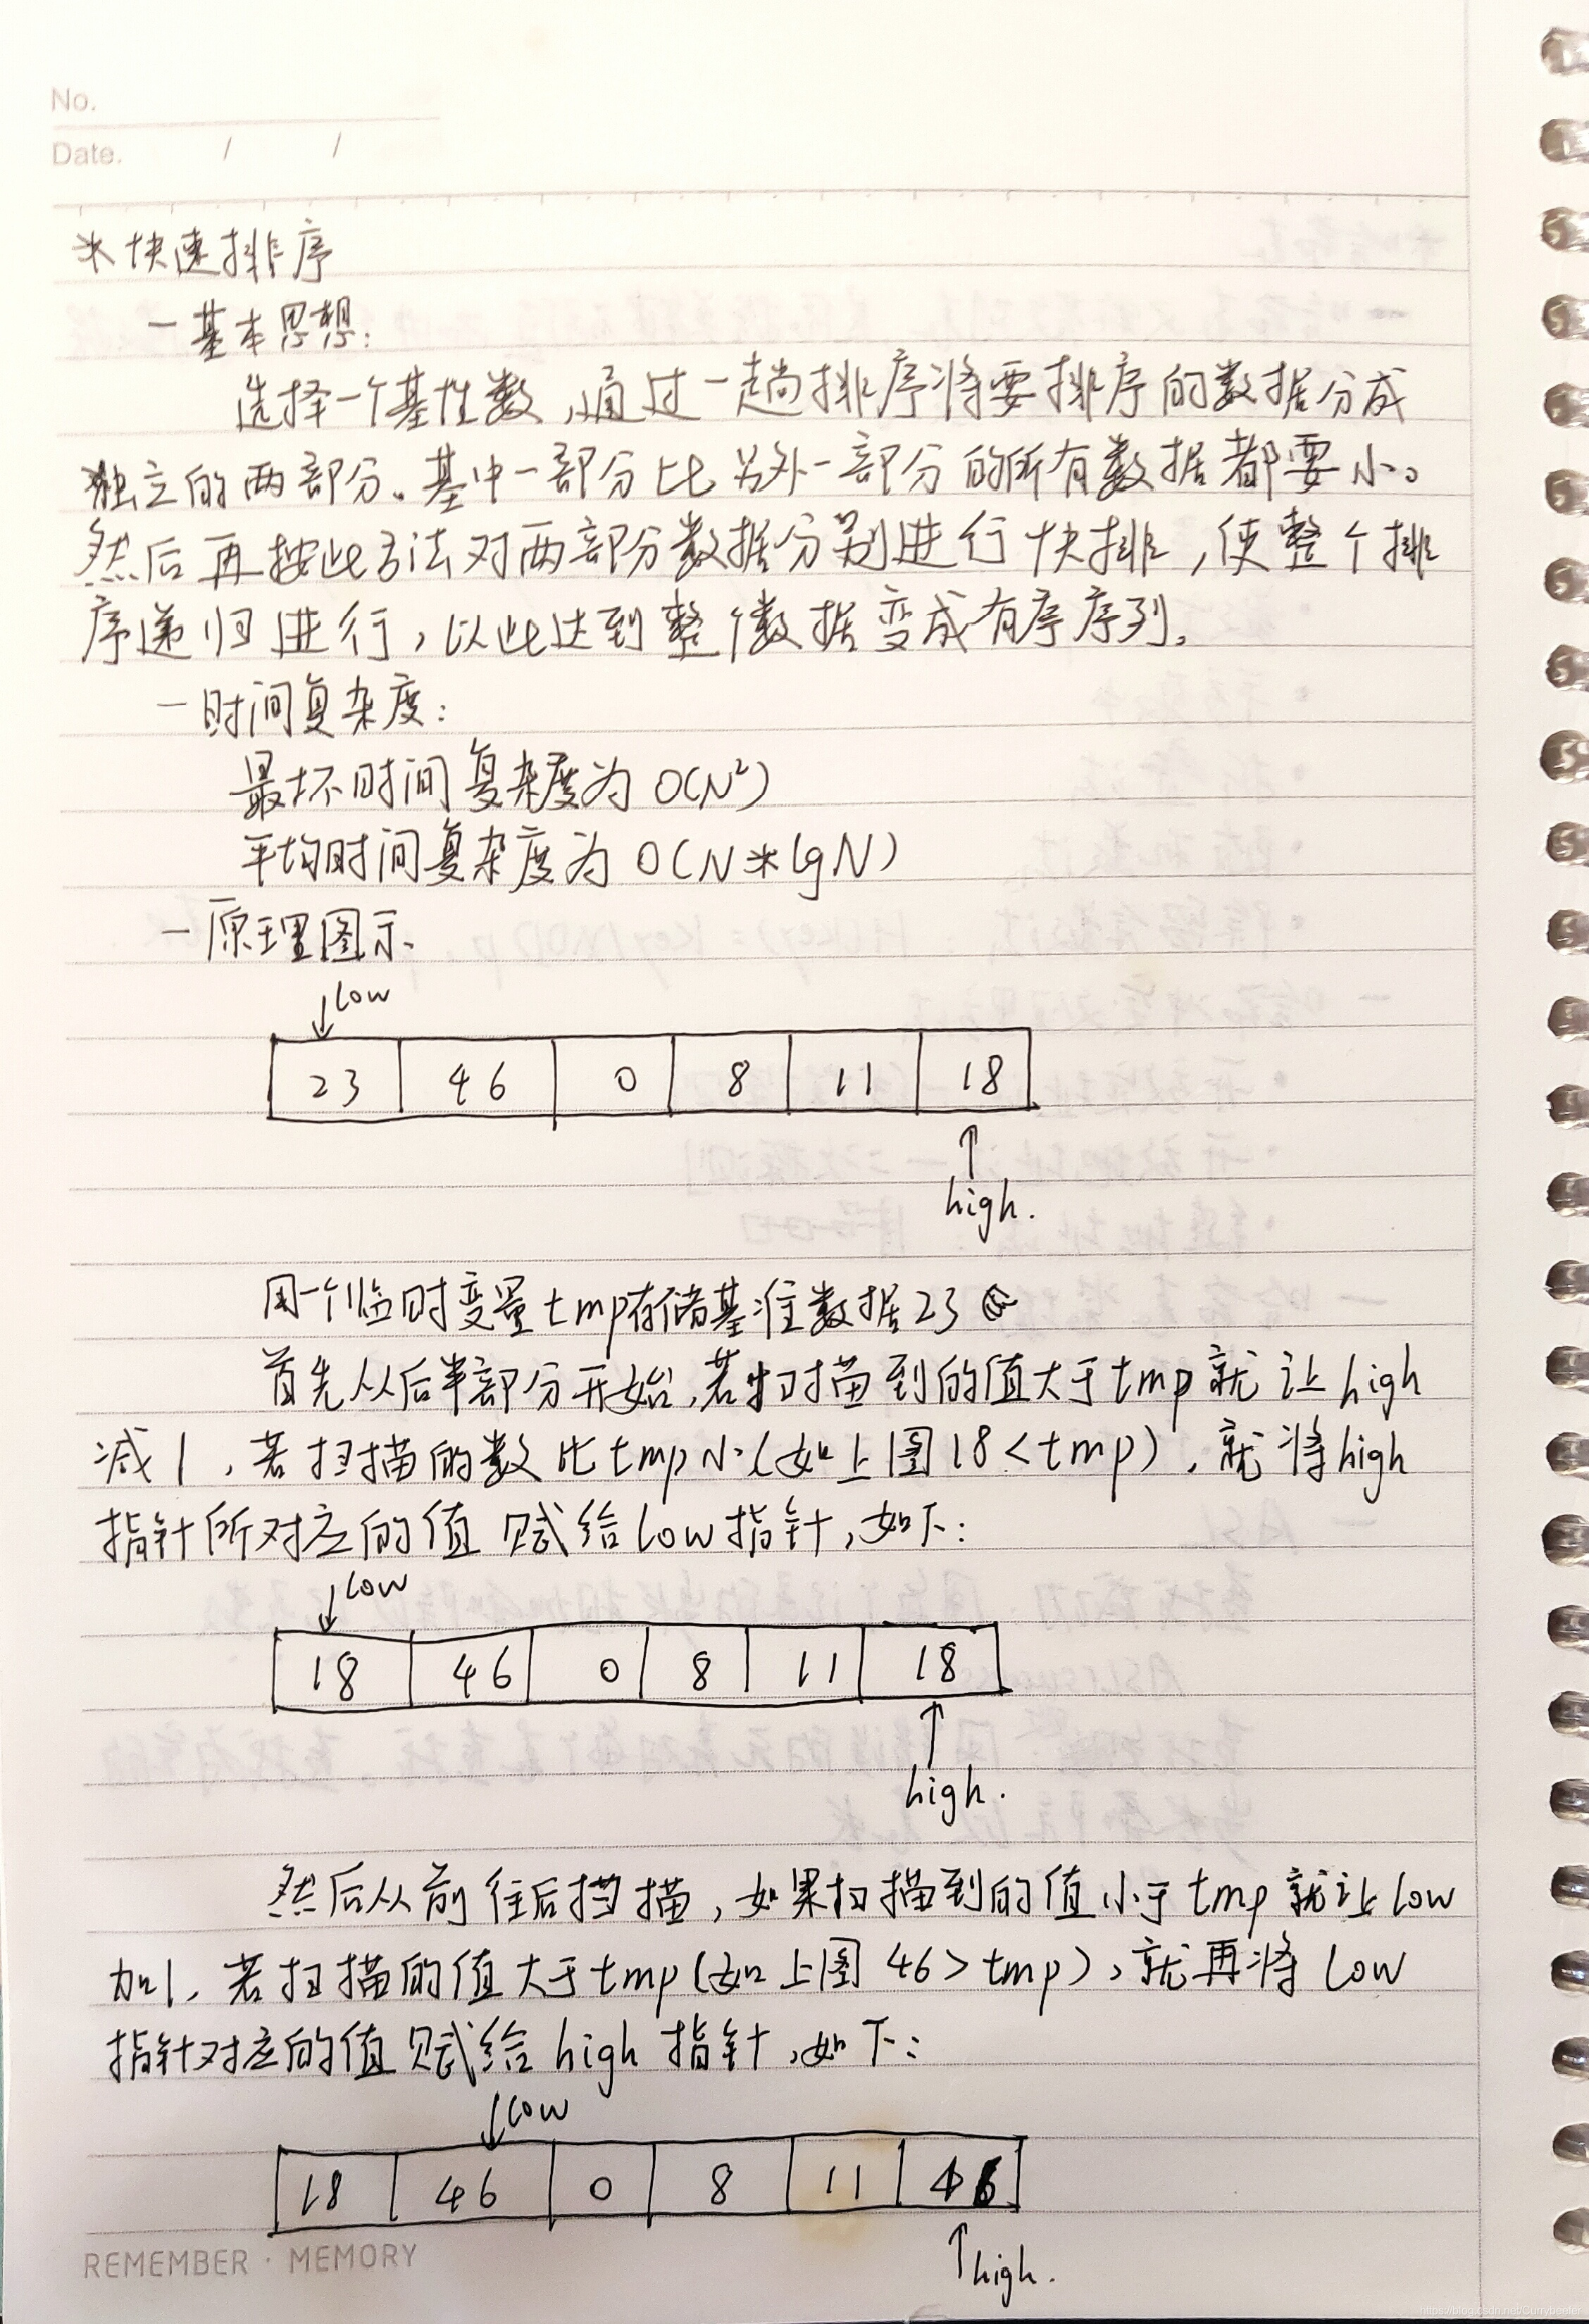 No.
Date. / /
* 快速排序
- 基本思想:
选择一个基准数,通过一趟排序将要排序的数据分成
独立的两部分。基中一部分比另外一部分的所有数据都要小。
然后再按此方法对两部分数据分别进行快排,使整个排
序递归进行,以此达到整个数据变成有序序列。
- 时间复杂度:
最坏时间复杂度为 O(N²)
平均时间复杂度为 O(N*lgN)
- 原理图示
low
23 46 0 8 11 18
high.
用一个临时变量tmp存储基准数据23
首先从后半部分开始,若扫描到的值大于tmp就让high
减1,若扫描的数比tmp小(如上图18<tmp),就将high
指针所对应的值赋给low指针,如下:
low
18 46 0 8 11 18
high.
然后从前往后扫描,如果扫描到的值小于tmp就让low
加1,若扫描的值大于tmp(如上图 46>tmp),就再将low
指针对应的值赋给high指针,如下:
low
18 46 0 8 11 46
high.
REMEMBER · MEMORY